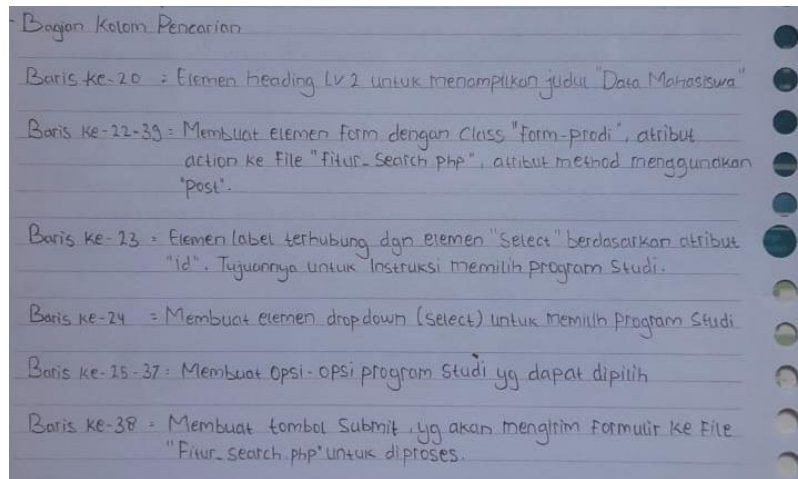 - Bagian Kolom Pencarian
Baris ke-20 : Elemen heading Lv 2 untuk menampilkan judul "Data Mahasiswa"
Baris Ke-22-39 : Membuat elemen form dengan Class "form-prodi", atribut
action ke File "fitur_Search php", atribut method menggunakan
"post".
Baris Ke-23 : Elemen label terhubung dgn elemen "Select" berdasarkan atribut
"id". Tujuannya untuk Instruksi memilih program Studi.
Baris Ke-24 : Membuat elemen dropdown (select) untuk memilih program Studi
Baris Ke-25-37 : Membuat opsi-opsi program Studi yg dapat dipilih
Baris Ke-38 : Membuat tombol Submit, yg akan mengirim formulir ke File
"Fitur_Search.php" untuk diproses.